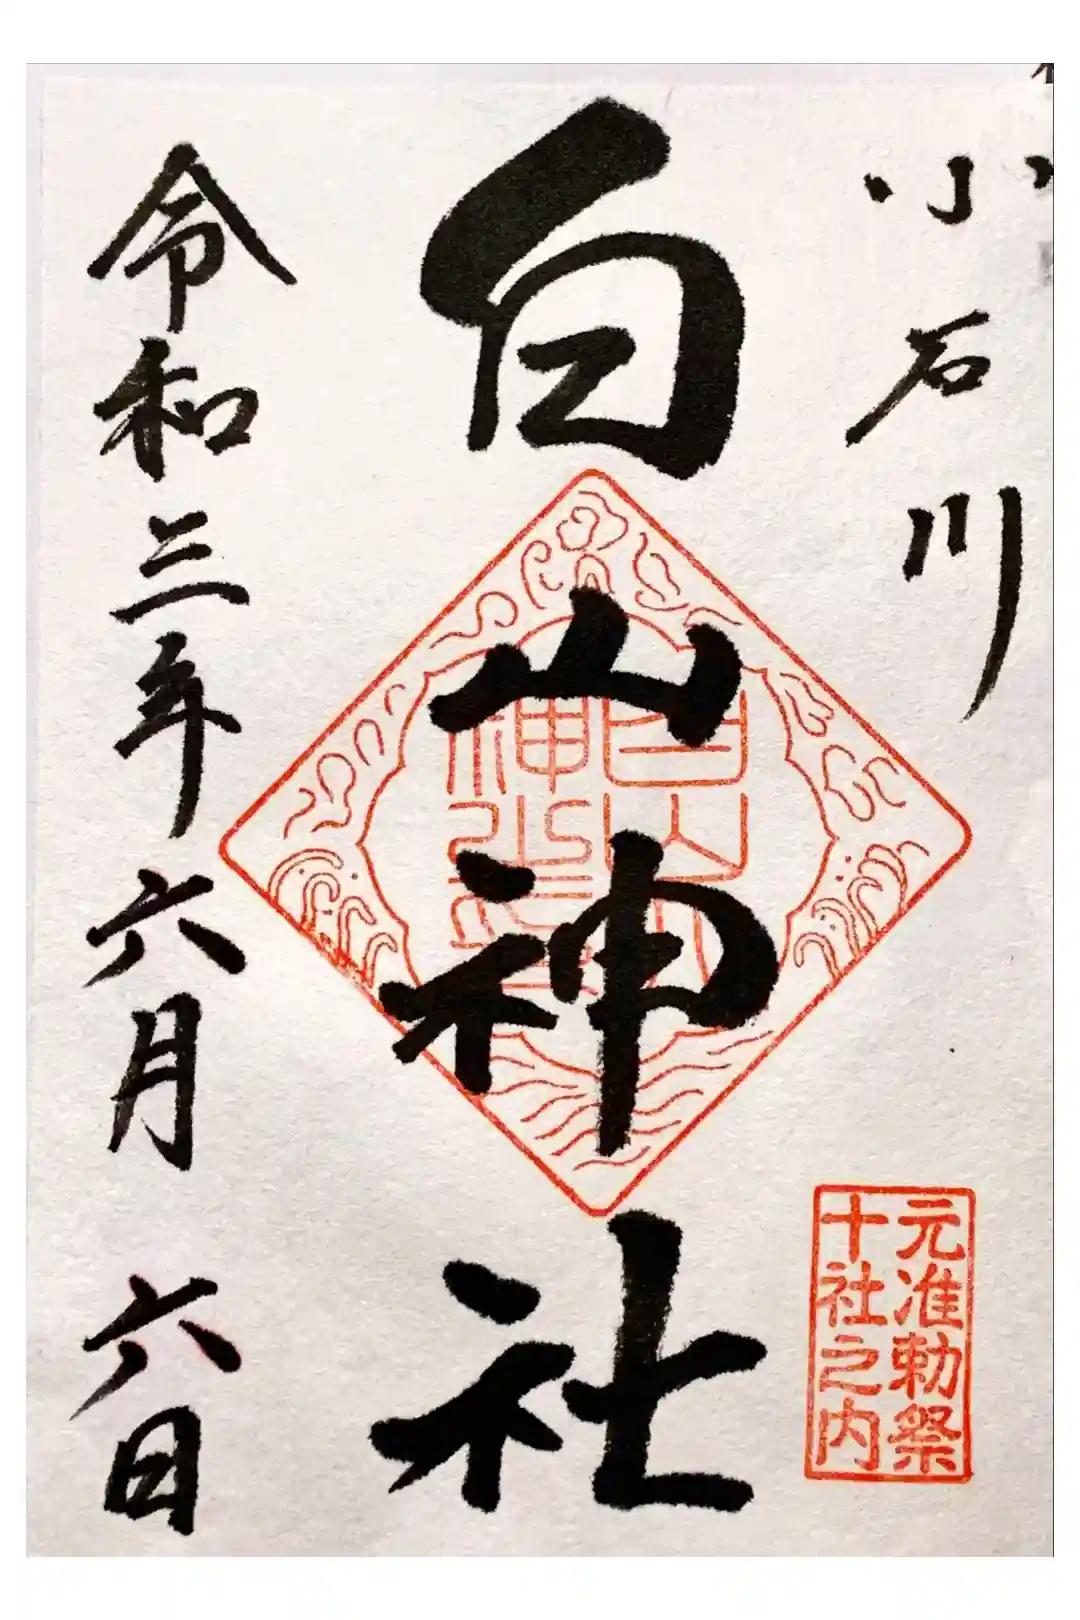 小石川
元准勅祭
十社之内
白山神社
令和三年六月六日